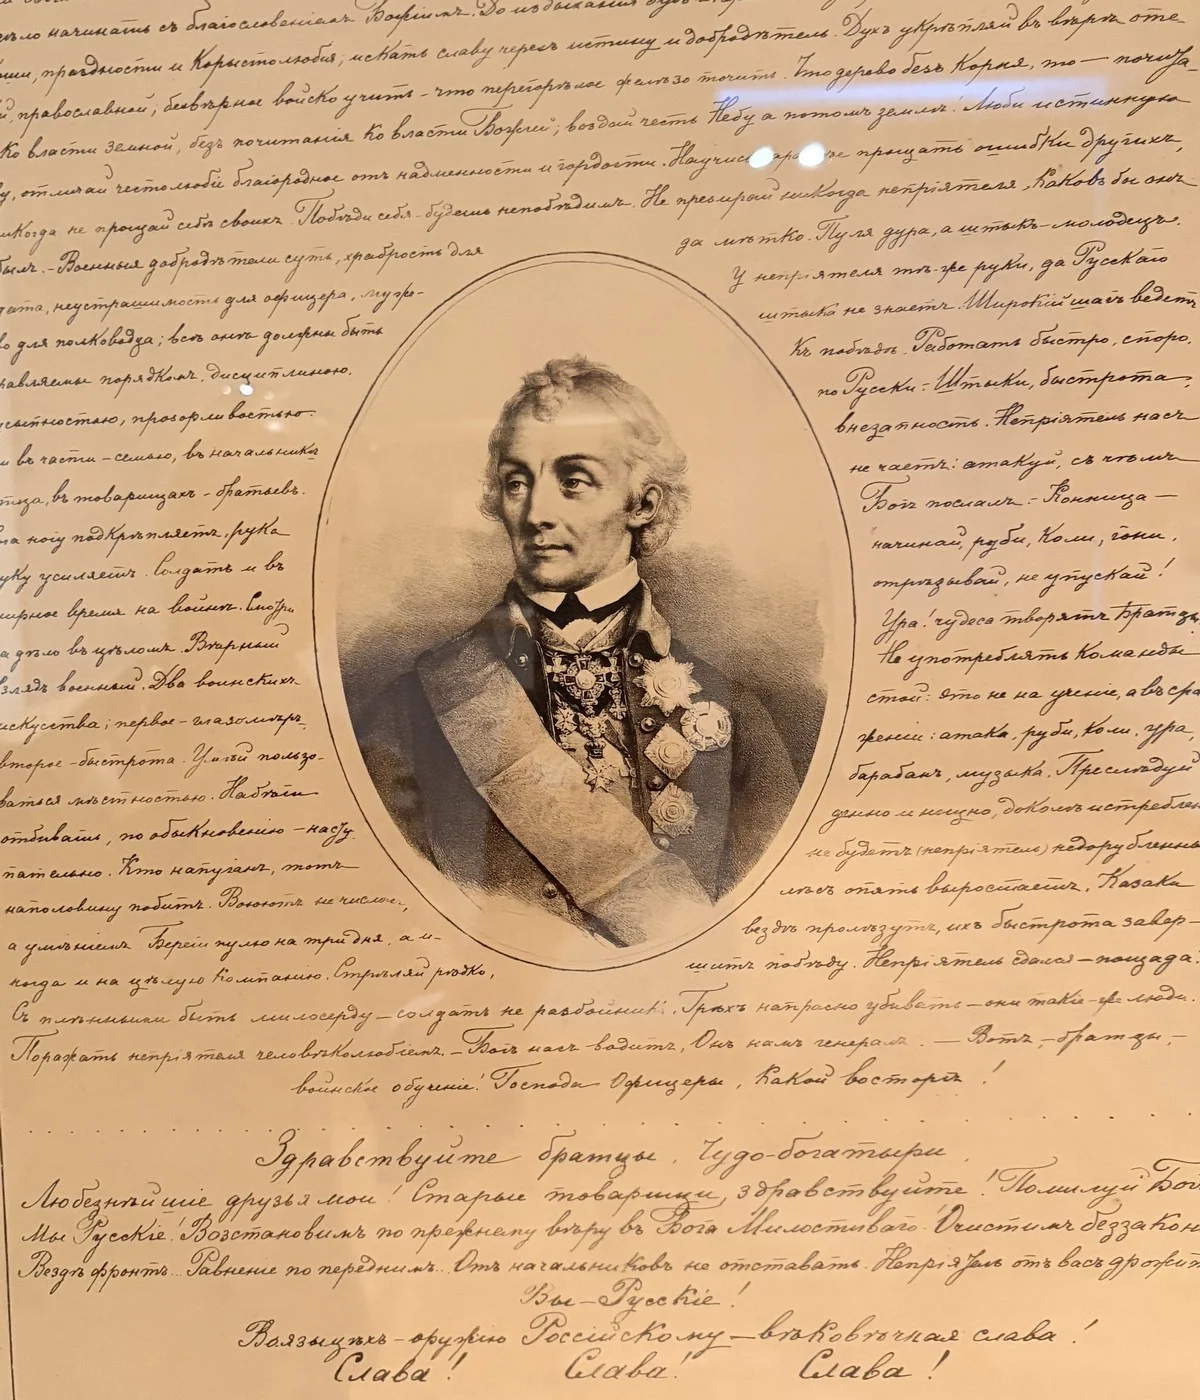 дѣло начинать съ благословеніемъ Божіимъ. До издыханія
праздности и корыстолюбія; искать славу черезъ истину и добродѣтель. Духъ укрѣпляй въ вѣрѣ оте-
й, православной; безвѣрное войско учить – что перегорѣлое желѣзо точить. Что дерево безъ корня, то – почита-
ко власти земной, безъ почитанія ко власти Божіей; воздай честь Небу а потомъ землѣ! Люби истинную
у, отличай честолюбіе благородное отъ надменности и гордости. прощать ошибки другихъ,
икогда не прощай себѣ своихъ. Побѣди себя – будешь непобѣдимъ. Не презирай никогда непріятеля, каковъ бы онъ
былъ. – Военныя добродѣтели суть, храбрость для
дата, неустрашимость для офицера, муже-
о для полководца; всѣ онѣ должны быть
авляемы порядкомъ, дисциплиною,
сыпностью, прозорливостью.
и въ части – семью, въ начальникѣ
тца, въ товарищахъ – братьевъ.
на ногу подкрѣпляетъ, рука
уку усиляетъ. Солдатъ и въ
мирное время на войнѣ. Смотри
а дѣло въ цѣломъ. Вѣрный
взлядъ военный. Два воинскихъ
искусства; первое – глазомѣръ,
второе – быстрота. Умѣй пользо-
ваться мѣстностью. Набѣги
отбивать, по обыкновенію – насту-
пательно. Кто напуганъ, тотъ
наполовину побитъ. Воюютъ не числомъ,
а умѣніемъ Береги пулю на три дня, а и-
ногда и на цѣлую компанію. Стрѣляй рѣдко,
да мѣтко. Пуля дура, а штыкъ – молодецъ.
У непріятеля тѣ-же руки, да Русскаго
штыка не знаетъ. Широкій шагъ ведетъ
къ побѣдѣ. Работать быстро, споро,
по Русски: Штыки, быстрота,
внезапность. Непріятель насъ
не чаетъ: атакуй, съ чѣмъ
Богъ послалъ: Конница –
начинай, руби, коли, гони,
отрѣзывай, не упускай!
Ура! чудеса творятъ братцы,
Не употреблять команды
стой: это не на ученіе, а въ сра-
женіи: атака, руби, коли, ура,
барабанъ, музыка. Преслѣдуй
денно и нощно, доколѣ истребленъ
не будетъ (непріятель) недорубленный
лѣсъ опять выростаетъ. Казаки
вездѣ пролѣзутъ, ихъ быстрота завер-
шитъ побѣду. Непріятель сдался – пощада:
Съ плѣнными быть милосерду – солдатъ не разбойникъ. Грѣхъ напрасно убивать – они такіе-же люди.
Поражать непріятеля человѣколюбіемъ. – Богъ насъ водитъ, Онъ намъ генералъ. – Вотъ, – братцы, –
воинское обученіе! Господа Офицеры, какой восторгъ!
Здравствуйте братцы. Чудо-богатыри
Любезнѣйшіе друзья мои! Старые товарищи, здравствуйте! Помилуй Бог
Мы Русскіе! Возстановимъ по прежнему вѣру въ Бога Милостиваго! Очистимъ беззакон
Вездѣ фронтъ... Равненіе по переднимъ.. Отъ начальниковъ не отставать. Непріятель отъ васъ дрожит
Вы – Русскіе!
Во языцѣхъ – оружію Россійскому – вѣковѣчная слава!
Слава! Слава! Слава!